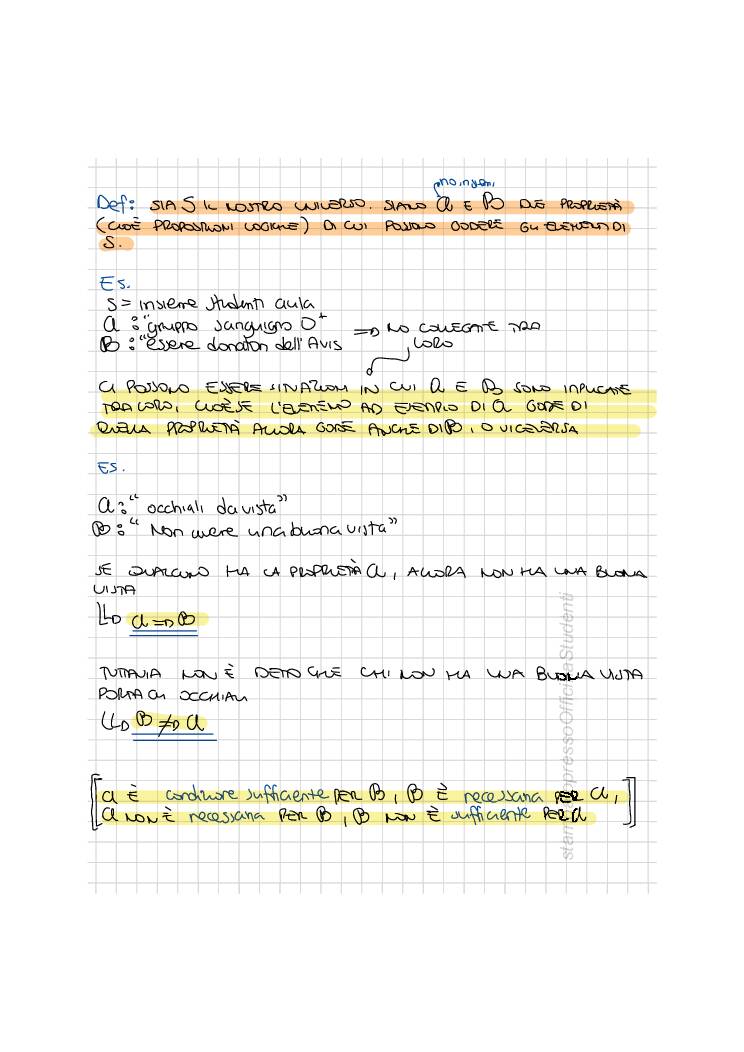 no insiemi
Def: SIA S IL NOSTRO UNIVERSO. SIANO A E B DUE PROPRIETÀ
(CIOÈ PROPOSIZIONI LOGICHE) DI CUI POSSONO GODERE GLI ELEMENTI DI
S.
Es.
S = insieme studenti aula
A : "gruppo sanguigno 0⁺ ⇒ NO COLLEGATE TRA
B : "essere donatori dell'Avis LORO
CI POSSONO ESSERE SITUAZIONI IN CUI A E B SONO IMPLICATE
TRA LORO, CIOÈ SE L'ELEMENTO AD ESEMPIO DI A GODE DI
QUELLA PROPRIETÀ ALLORA GODE ANCHE DI B, O VICEVERSA
ES.
A : " occhiali da vista"
B : " Non avere una buona vista"
SE QUALCUNO HA LA PROPRIETÀ A, ALLORA NON HA UNA BUONA
VISTA
A ⇒ B
TUTTAVIA NON È DETTO CHE CHI NON HA UNA BUONA VISTA
PORTA GLI OCCHIALI
B ⇏ A
[A È condizione sufficiente PER B, B È necessaria PER A,
A NON È necessaria PER B, B NON È sufficiente PER A]